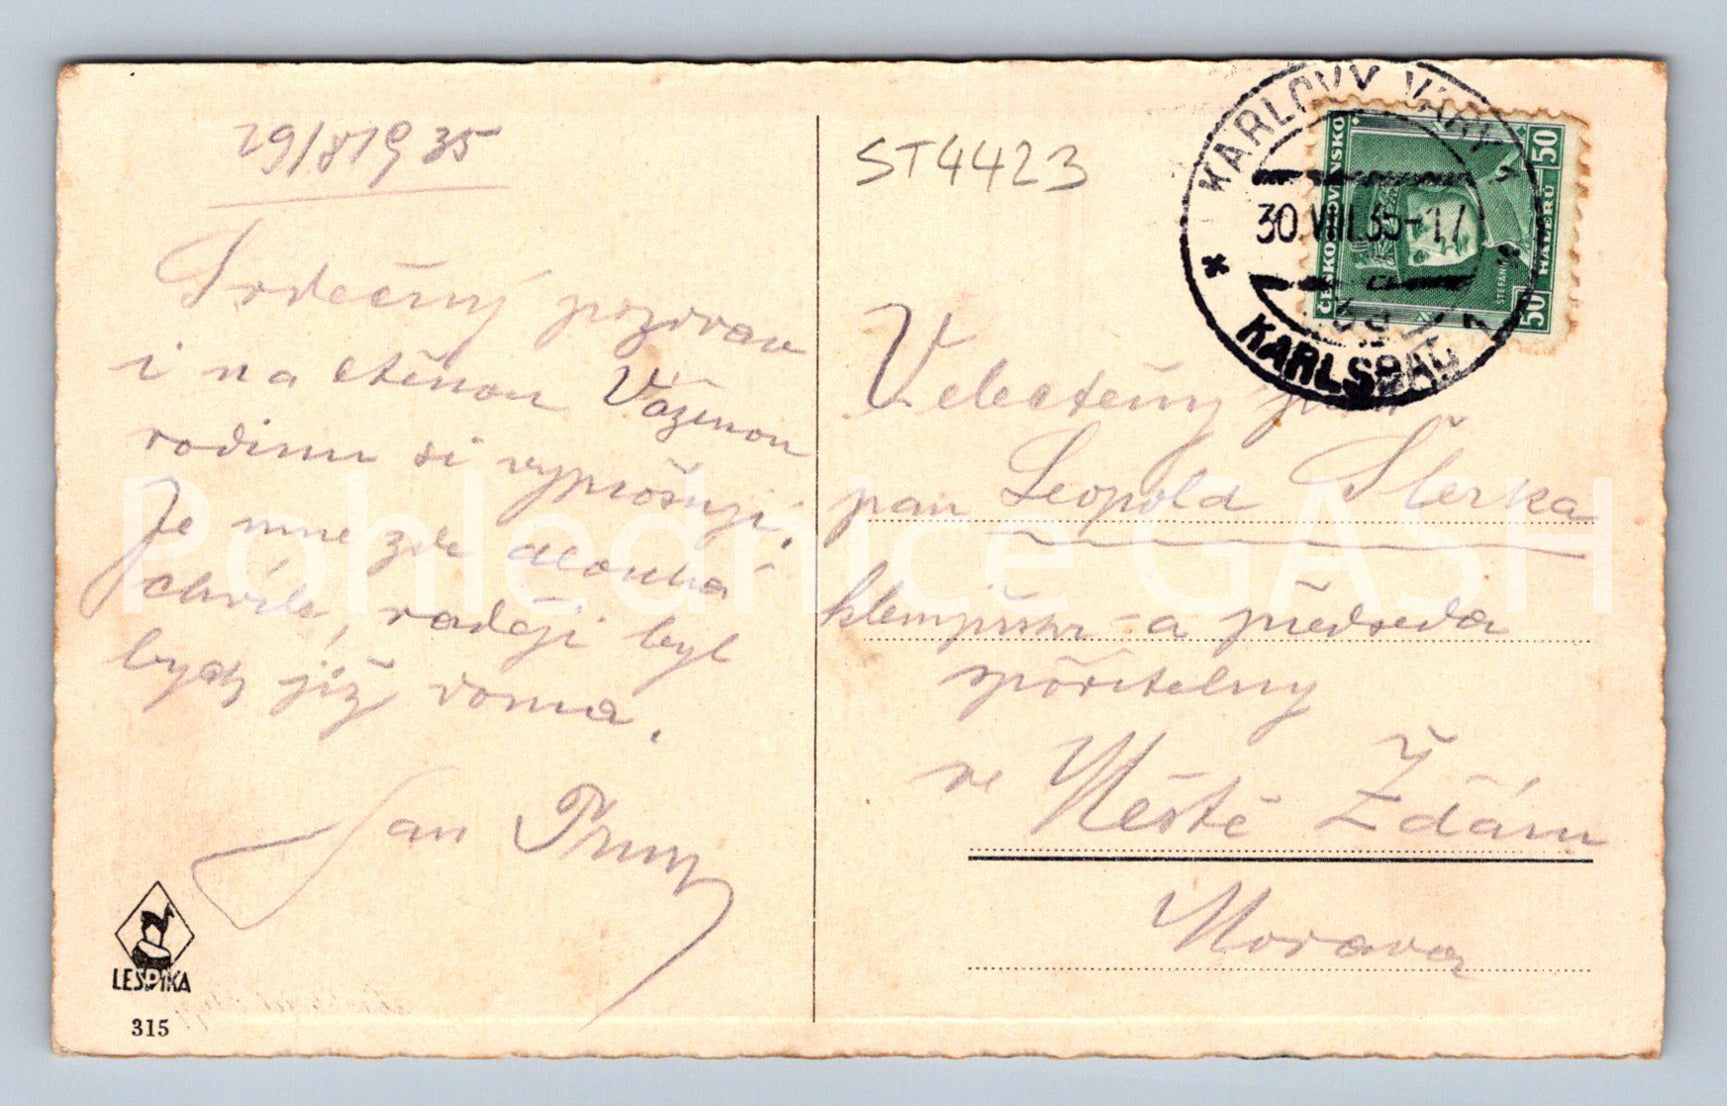 29/8 1935
Srdečný pozdrav
i na ctěnou Váženou
rodinu si vyprošuji,
Je mne zde dlouhá
chvíle, raději byl
bych již doma.
Jan
LESPIKA
315
ST4423
KARLOVY VARY
30.VIII.35-17
KARLSBAD
ČESKOSLOVENSKO
50 HALÉŘŮ 50
ŠTEFÁNIK
Velectěný pan
pan Leopold Šterka
klempíř a předseda
spořitelny
ve Městě Žďáru
Morava
Pohlednice GASH